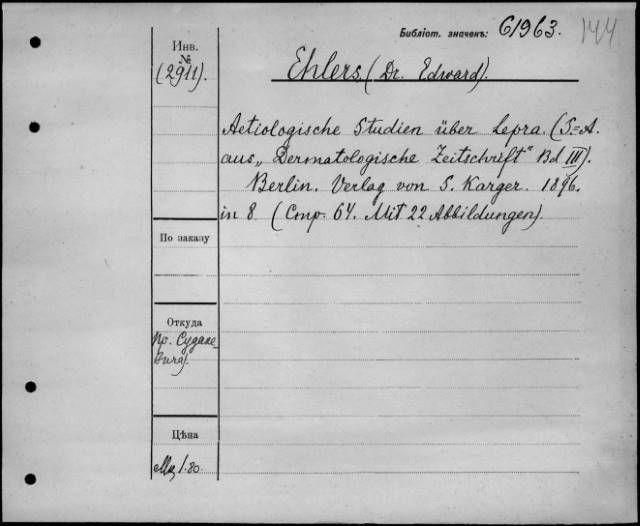 Библіот. значекъ: 61963. 144
Инв.
№
(2911).
Ehlers, (Dr. Edward).
Aetiologische Studien über Lepra. (S.=A.
aus „Dermatologische Zeitschrift" Bd III).
Berlin. Verlag von S. Karger. 1896.
in 8. (Стр. 64. Mit 22 Abbildungen).
По заказу
Откуда
Пр.
Цѣна
1.80.